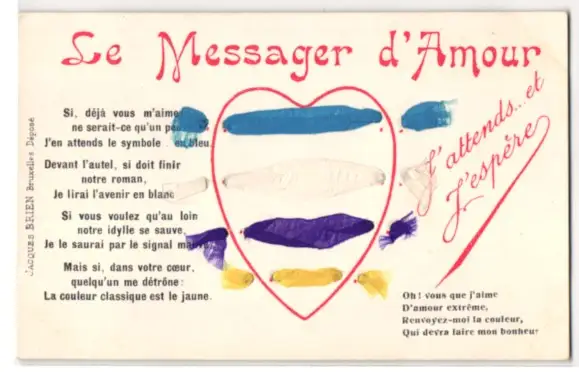 Le Messager d'Amour
Si, déjà vous m'aime
ne serait-ce qu'un
J'en attends le symbole en bleu.
Devant l'autel, si doit finir
notre roman,
Je lirai l'avenir en blanc
Si vous voulez qu'au loin
notre idylle se sauve,
Je le saurai par le signal mauve
Mais si, dans votre cœur,
quelqu'un me détrône:
La couleur classique est le jaune.
J'attends... et
J'espère
Oh! vous que j'aime
D'amour extrême,
Renvoyez-moi la couleur,
Qui devra faire mon bonheur
JACQUES BRIEN Bruxelles Déposé